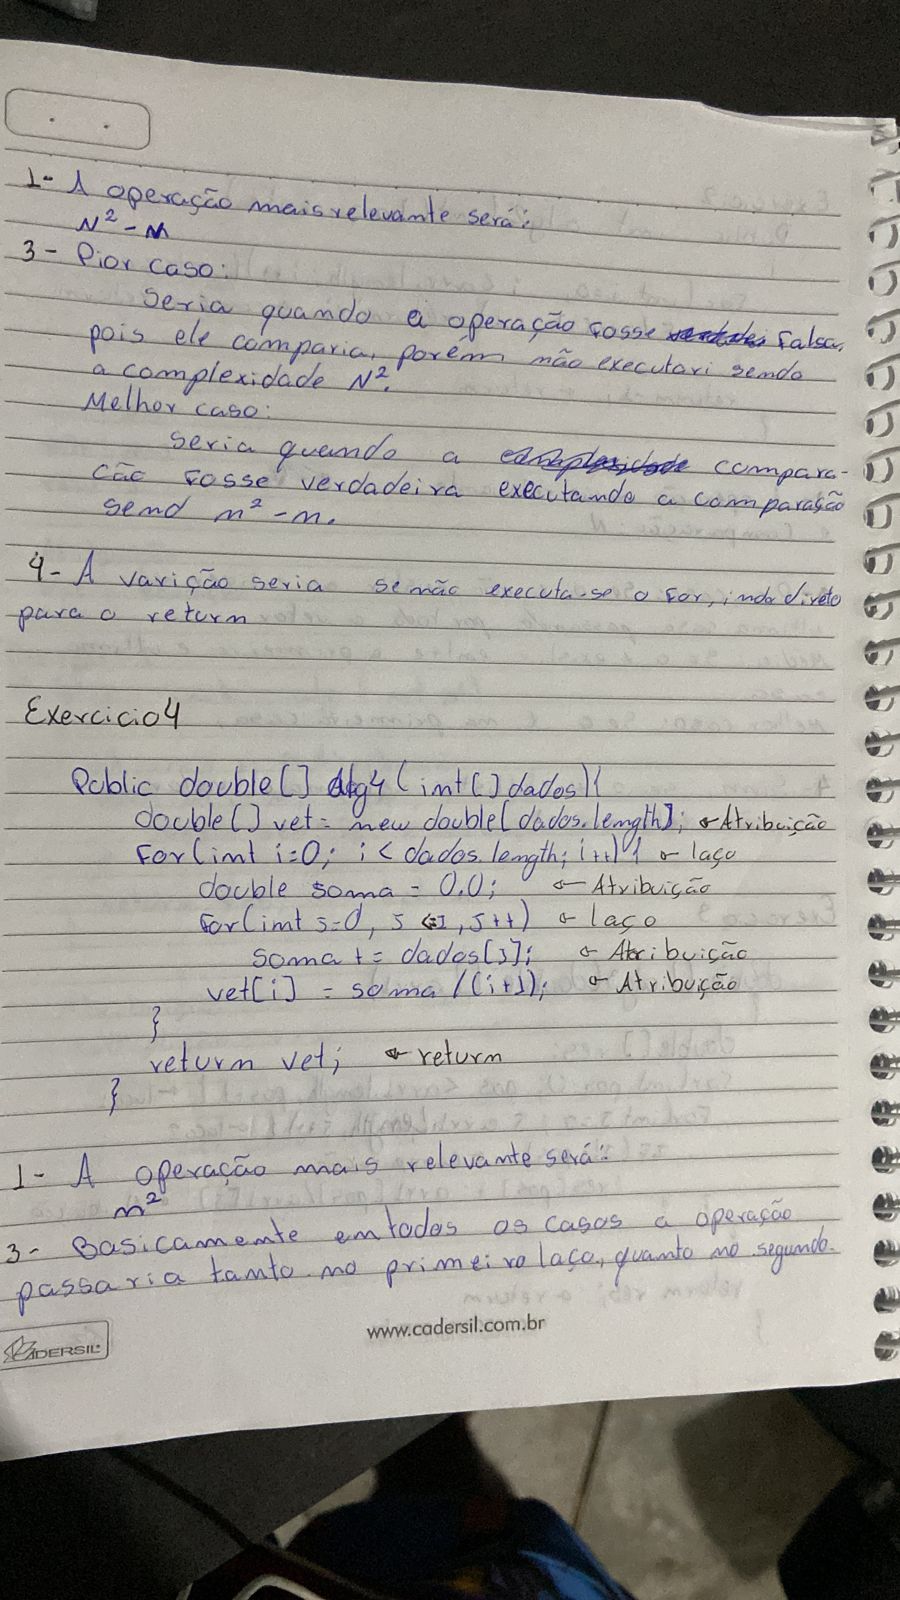 1- A operação mais relevante será:
N² - n
3- Pior caso:
Seria quando a operação fosse falsa,
pois ele comparia, porém não executari sendo
a complexidade N².
Melhor caso:
Seria quando a compara-
cão fosse verdadeira executando a comparação
send n² - n.
4- A varição seria se não executa-se o for, indo direto
para o return
Exercicio 4
Public double[] Alg4 (int[] dados){
double[] vet = new double[dados.length]; ← Atribuição
For(int i=0; i < dados.length; i++){ ← laço
double soma = 0.0; ← Atribuição
for(int j=0, j <=i, j++) ← laço
soma += dados[j]; ← Atribuição
vet[i] = soma /(i+1); ← Atribuição
}
return vet; ← return
}
1- A operação mais relevante será:
n²
3- Basicamente em todos os casos a operação
passaria tanto no primeiro laço, quanto no segundo.
www.cadersil.com.br
CADERSIL